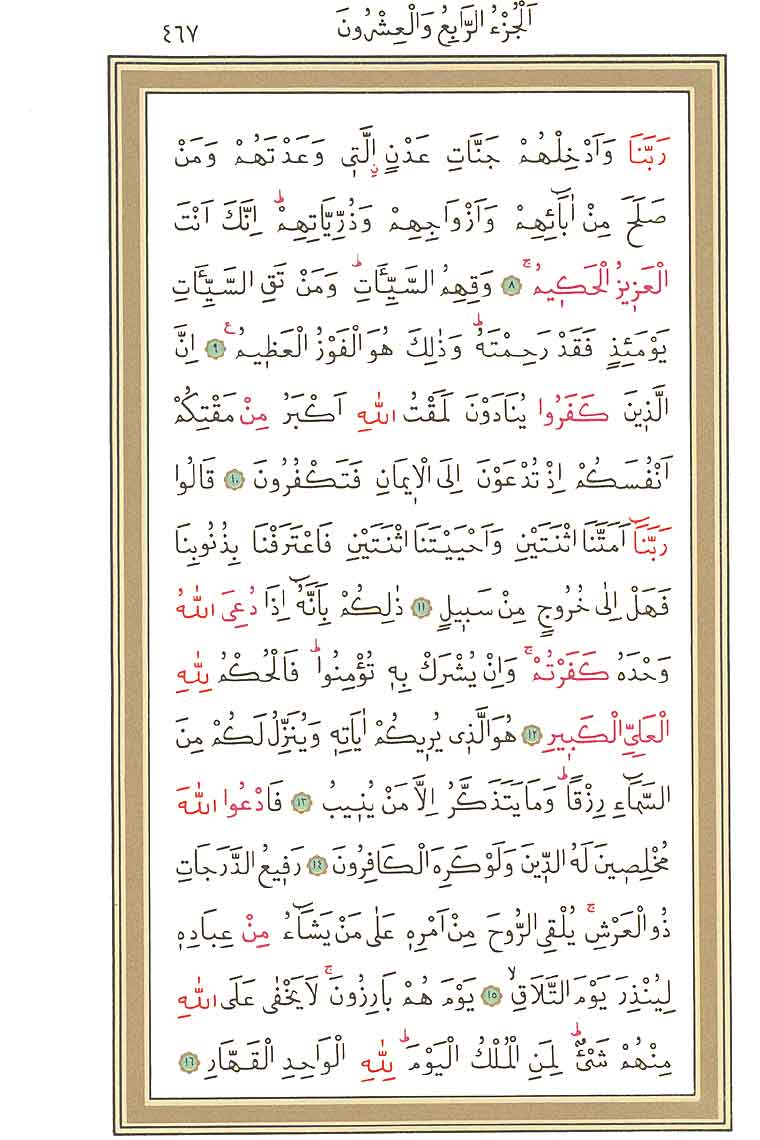 اَلْجُزْءُ الرَّابِعُ وَالْعِشْرُونَ
٤٦٧
رَبَّنَا وَاَدْخِلْهُمْ جَنَّاتِ عَدْنٍۨ الَّتٖي وَعَدْتَهُمْ وَمَنْ
صَلَحَ مِنْ اٰبَٓائِهِمْ وَاَزْوَاجِهِمْ وَذُرِّيَّاتِهِمْؕ اِنَّكَ اَنْتَ
الْعَزٖيزُ الْحَكٖيمُۚ ٨ وَقِهِمُ السَّيِّـَٔاتِؕ وَمَنْ تَقِ السَّيِّـَٔاتِ
يَوْمَئِذٍ فَقَدْ رَحِمْتَهُؕ وَذٰلِكَ هُوَ الْفَوْزُ الْعَظٖيمُ ع ٩ اِنَّ
الَّذٖينَ كَفَرُوا يُنَادَوْنَ لَمَقْتُ اللّٰهِ اَكْبَرُ مِنْ مَقْتِكُمْ
اَنْفُسَكُمْ اِذْ تُدْعَوْنَ اِلَى الْاٖيمَانِ فَتَكْفُرُونَ ١٠ قَالُوا
رَبَّنَٓا اَمَتَّنَا اثْنَتَيْنِ وَاَحْيَيْتَنَا اثْنَتَيْنِ فَاعْتَرَفْنَا بِذُنُوبِنَا
فَهَلْ اِلٰى خُرُوجٍ مِنْ سَبٖيلٍ ١١ ذٰلِكُمْ بِاَنَّهُٓ اِذَا دُعِيَ اللّٰهُ
وَحْدَهُ كَفَرْتُمْۚ وَاِنْ يُشْرَكْ بِهٖ تُؤْمِنُواؕ فَالْحُكْمُ لِلّٰهِ
الْعَلِيِّ الْكَبٖيرِ ١٢ هُوَ الَّذٖي يُرٖيكُمْ اٰيَاتِهٖ وَيُنَزِّلُ لَكُمْ مِنَ
السَّمَٓاءِ رِزْقًاؕ وَمَا يَتَذَكَّرُ اِلَّا مَنْ يُنٖيبُ ١٣ فَادْعُوا اللّٰهَ
مُخْلِصٖينَ لَهُ الدّٖينَ وَلَوْ كَرِهَ الْكَافِرُونَ ١٤ رَفٖيعُ الدَّرَجَاتِ
ذُو الْعَرْشِۚ يُلْقِي الرُّوحَ مِنْ اَمْرِهٖ عَلٰى مَنْ يَشَٓاءُ مِنْ عِبَادِهٖ
لِيُنْذِرَ يَوْمَ التَّلَاقِۙ ١٥ يَوْمَ هُمْ بَارِزُونَۚ لَا يَخْفٰى عَلَى اللّٰهِ
مِنْهُمْ شَيْءٌؕ لِمَنِ الْمُلْكُ الْيَوْمَؕ لِلّٰهِ الْوَاحِدِ الْقَهَّارِ ١٦